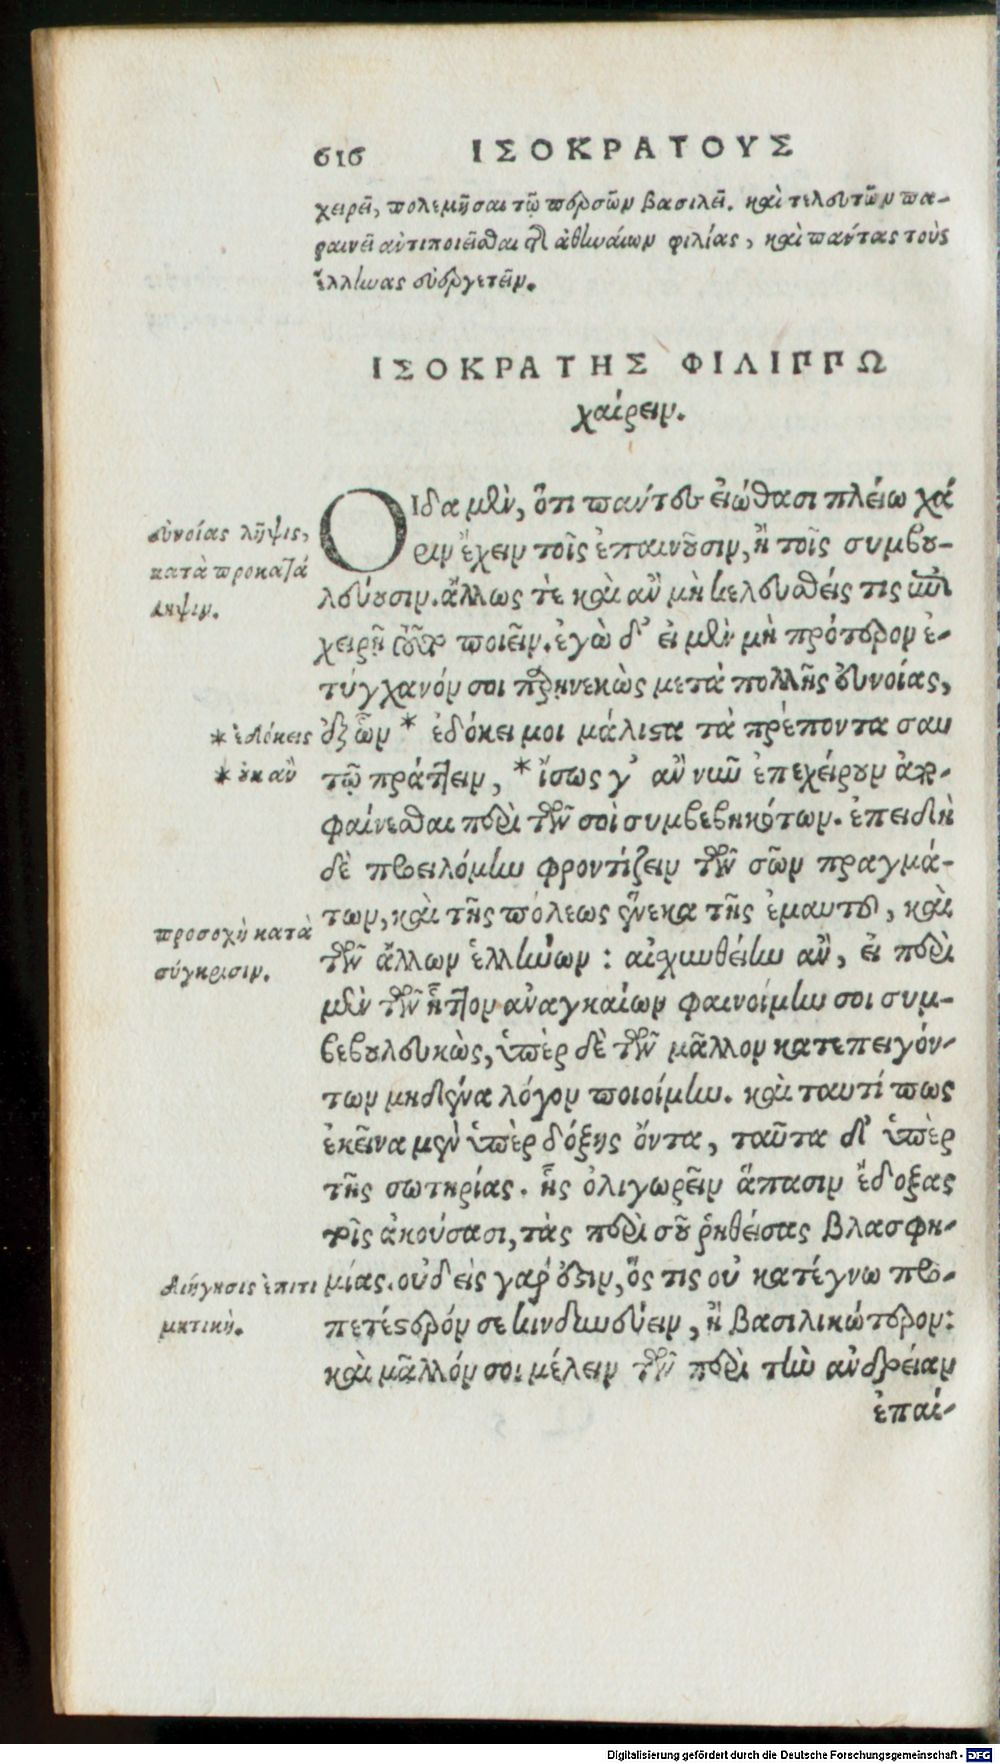 616 ΙΣΟΚΡΑΤΟΥΣ
χειρεῖν, πολεμῆσαι τῷ περσῶν βασιλεῖ. καὶ τελευτῶν πα-
ραινεῖ ἀντιποιεῖσθαι τῆς ἀθηναίων φιλίας, καὶ πάντας τοὺς
ἕλληνας εὐεργετεῖν.
ΙΣΟΚΡΑΤΗΣ ΦΙΛΙΠΠΩ
χαίρειν.
ΟΙδα μὲν, ὅτι πάντες εἰώθασι πλείω χά
ριν ἔχειν τοῖς ἐπαινοῦσιν, ἢ τοῖς συμβου-
λεύουσιν. ἄλλως τὲ καὶ ἂν μὴ κελευσθείς τις ἐπι
χειρῇ τοῦτο ποιεῖν. ἐγὼ δ' εἰ μὲν μὴ πρότερον ἐ-
τύγχανόν σοι παρῃνεκὼς μετὰ πολλῆς εὐνοίας,
ἐξ ὧν * ἐδόκει μοι μάλιστα τὰ πρέποντα σαυ
τῷ πράττειν, * ἴσως γ' ἂν νῦν ἐπεχείρουν ἀπο-
φαίνεσθαι περὶ τῶν σοὶ συμβεβηκότων. ἐπειδὴ
δὲ προειλόμην φροντίζειν τῶν σῶν πραγμά-
των, καὶ τῆς πόλεως ἕνεκα τῆς ἐμαυτοῦ, καὶ
τῶν ἄλλων ἑλλήνων: αἰσχυνθείην ἂν, εἰ περὶ
μὲν τῶν ἧττον ἀναγκαίων φαινοίμην σοι συμ-
βεβουλευκὼς, ὑπὲρ δὲ τῶν μᾶλλον κατεπειγόν-
των μηδένα λόγον ποιοίμην. καὶ ταυτί πως
ἐκεῖνα μὲν ὑπὲρ δόξης ὄντα, ταῦτα δ' ὑπὲρ
τῆς σωτηρίας. ἧς ὀλιγωρεῖν ἅπασιν ἔδοξας
τοῖς ἀκούσασι, τὰς περὶ σοῦ ῥηθείσας βλασφη-
μίας. οὐδεὶς γάρ ἐστιν, ὅς τις οὐ κατέγνω προ-
πετέστερόν σε κινδυνεύειν, ἢ βασιλικώτερον:
καὶ μᾶλλόν σοι μέλειν τῶν περὶ τὴν ἀνδρείαν
ἐπαί-
εὐνοίας λῆψις,
κατὰ προκατά
ληψιν.
* ἐδόκεις
* οὐκ ἂν
προσοχὴ κατὰ
σύγκρισιν.
διήγησις ἐπιτι
μητικὴ.
Digitalisierung gefördert durch die Deutsche Forschungsgemeinschaft - DFG